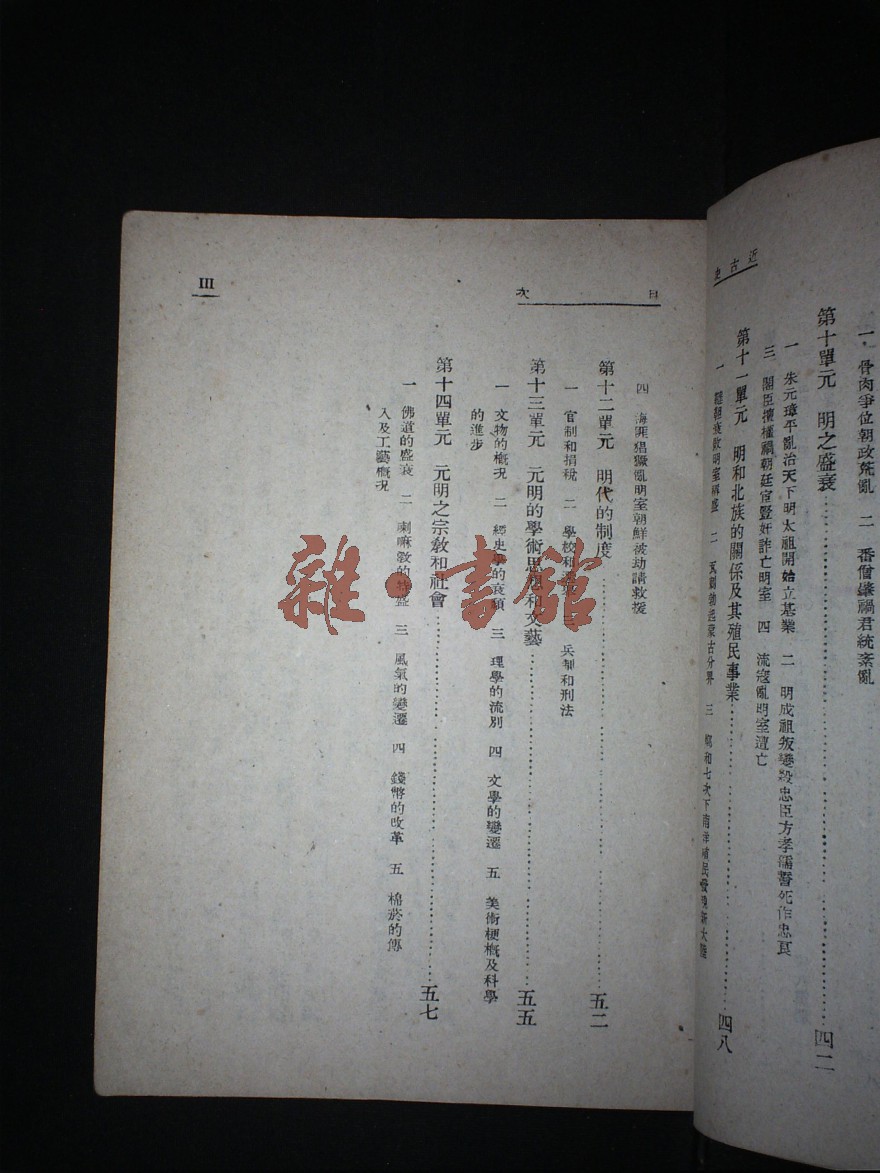 近古史
一 骨肉爭位朝政荒亂 二 番僧肇禍君統紊亂
第十單元 明之盛衰……四二
一 朱元璋平亂治天下明太祖開始立基業 二 明成祖叛變殺忠臣方孝濡誓死作忠良
三 閣臣擅權禍朝廷宦豎奸詐亡明室 四 流寇亂明室遭亡
第十一單元 明和北族的關係及其殖民事業……四八
一 韃靼衰敗明室稱盛 二 瓦剌勃起蒙古分界 三 和七次下南洋殖民發現新大陸
目次
四 海匪猖獗亂明室朝鮮被劫請救援
第十二單元 明代的制度……五二
一 官制和捐稅 二 學校和 三 兵制和刑法
第十三單元 元明的學術思想和文藝……五五
一 文物的概況 二 經史學的衰頹 三 理學的流別 四 文學的變遷 五 美術梗概及科學
的進步
第十四單元 元明之宗敎和社會……五七
一 佛道的盛衰 二 喇嘛敎的特盛 三 風氣的變遷 四 錢幣的改革 五 棉菸的傳
入及工藝概况
III
雜·書館